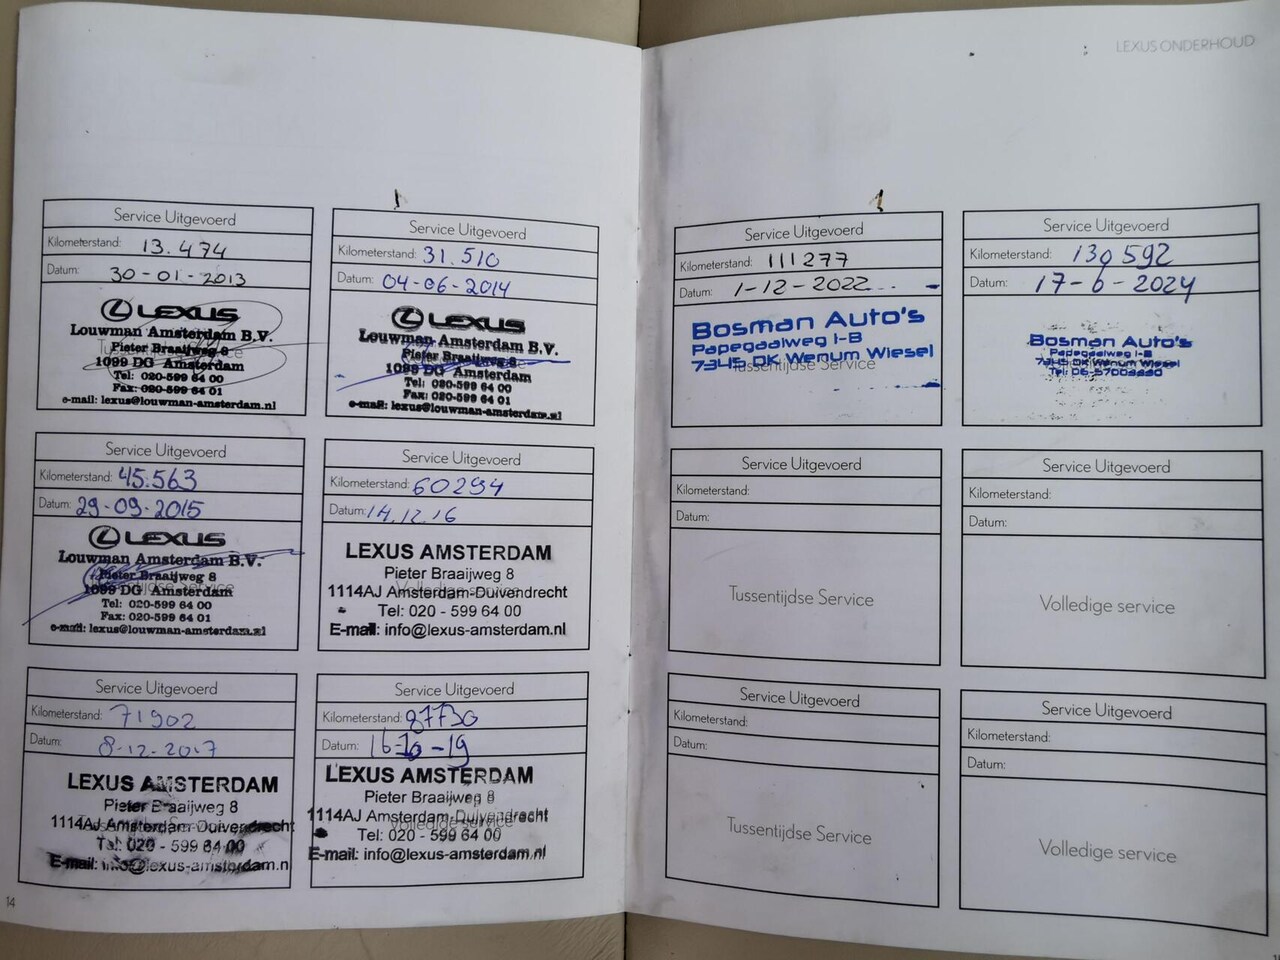 LEXUS ONDERHOUD
Service Uitgevoerd
Kilometerstand: 13.474
Datum: 30-01-2013
LEXUS
Louwman Amsterdam B.V.
Pieter Braaijweg 8
1099 DG Amsterdam
Tel: 020-599 64 00
Fax: 020-599 64 01
e-mail: lexus@louwman-amsterdam.nl
Service Uitgevoerd
Kilometerstand: 31.510
Datum: 04-06-2014
LEXUS
Louwman Amsterdam B.V.
Pieter Braaijweg 8
1099 DG Amsterdam
Tel: 020-599 64 00
Fax: 020-599 64 01
e-mail: lexus@louwman-amsterdam.nl
Service Uitgevoerd
Kilometerstand: 45.563
Datum: 29-09-2015
LEXUS
Louwman Amsterdam B.V.
Pieter Braaijweg 8
1099 DG Amsterdam
Tel: 020-599 64 00
Fax: 020-599 64 01
e-mail: lexus@louwman-amsterdam.nl
Service Uitgevoerd
Kilometerstand: 60294
Datum: 14.12.16
LEXUS AMSTERDAM
Pieter Braaijweg 8
1114AJ Amsterdam-Duivendrecht
Tel: 020 - 599 64 00
E-mail: info@lexus-amsterdam.nl
Service Uitgevoerd
Kilometerstand: 71902
Datum: 8-12-2017
LEXUS AMSTERDAM
Pieter Braaijweg 8
1114AJ Amsterdam-Duivendrecht
Tel: 020 - 599 64 00
E-mail: info@lexus-amsterdam.nl
Service Uitgevoerd
Kilometerstand: 87730
Datum: 16-10-19
LEXUS AMSTERDAM
Pieter Braaijweg 8
1114AJ Amsterdam-Duivendrecht
Volledige service
Tel: 020 - 599 64 00
E-mail: info@lexus-amsterdam.nl
14
Service Uitgevoerd
Kilometerstand: 111277
Datum: 1-12-2022
Bosman Auto's
Papegaalweg 1-B
7345 DK Wenum Wiesel
Tussentijdse Service
Service Uitgevoerd
Kilometerstand: 130592
Datum: 17-6-2024
Bosman Auto's
Papegaalweg 1-B
7345 DK Wenum Wiesel
Service Uitgevoerd
Kilometerstand:
Datum:
Tussentijdse Service
Service Uitgevoerd
Kilometerstand:
Datum:
Volledige service
Service Uitgevoerd
Kilometerstand:
Datum:
Tussentijdse Service
Service Uitgevoerd
Kilometerstand:
Datum:
Volledige service